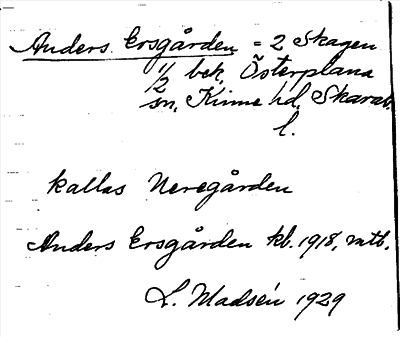 Anders Ersgården = 2 Skagen
1/2 bek, Österplana
sn, Kinne hd, Skarab.
l.
kallas Neregården
Anders Ersgården kb. 1918, mtb.
L. Madsén 1929